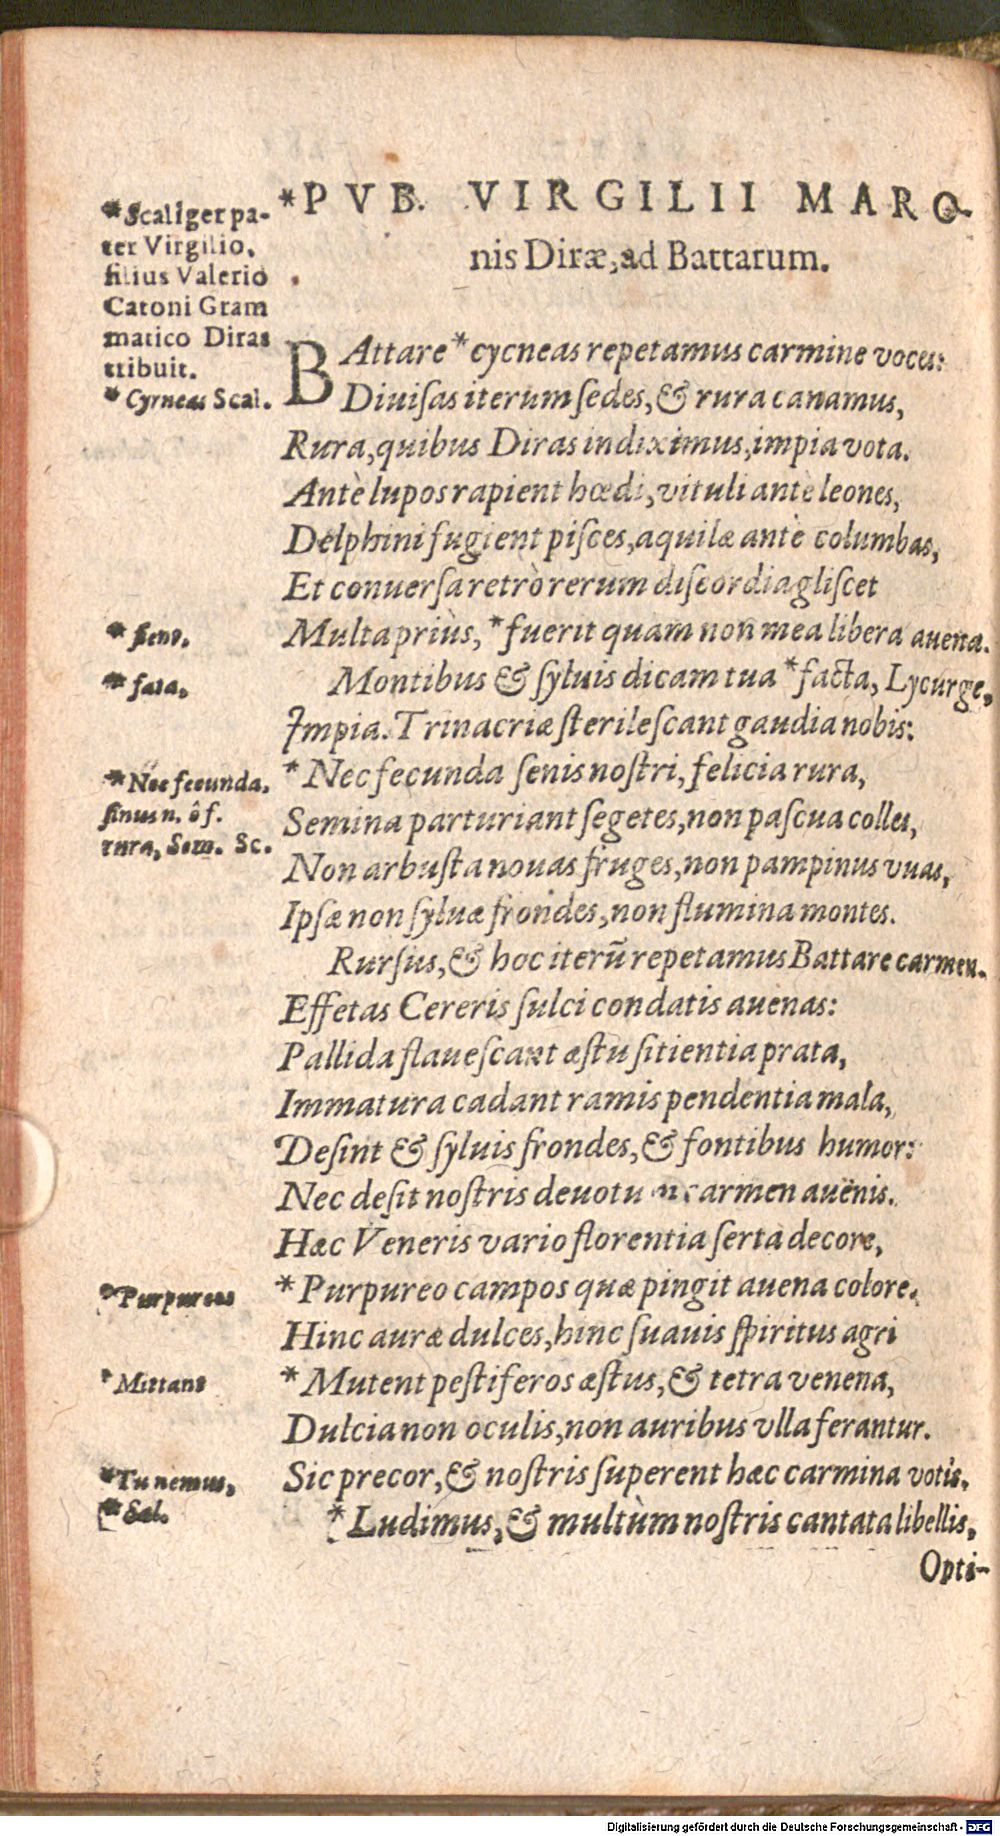 *PVB. VIRGILII MARO-
nis Diræ, ad Battarum.
*Scaliger pa-
ter Virgilio,
filius Valerio
Catoni Gram
matico Diras
tribuit.
*Cyrneas Scal.
BAttare *cycneas repetamus carmine voces:
Diuiſas iterum ſedes, & rura canamus,
Rura, quibus Diras indiximus, impia vota.
Antè lupos rapient hœdi, vituli antè leones,
Delphini fugient piſces, aquilæ antè columbas,
Et conuerſa retrò rerum diſcordia gliſcet
*fient.
Multa priùs, *fuerit quam non mea libera auena.
*fata,
Montibus & ſyluis dicam tua *facta, Lycurge,
Impia. Trinacriæ ſterileſcant gaudia nobis:
*Nec fecunda,
ſinum n. ô f.
rura, Sem. Sc.
*Nec fecunda ſenis noſtri, felicia rura,
Semina parturiant ſegetes, non paſcua colles,
Non arbuſta nouas fruges, non pampinus vuas,
Ipſæ non ſyluæ frondes, non flumina montes.
Rurſus, & hoc iterū repetamus Battare carmen.
Effetas Cereris ſulci condatis auenas:
Pallida flaueſcant æſtu ſitientia prata,
Immatura cadant ramis pendentia mala,
Deſint & ſyluis frondes, & fontibus humor:
Nec deſit noſtris deuotum carmen auënis.
Hæc Veneris vario florentia ſerta decore,
*Purpureas
*Purpureo campos quæ pingit auena colore.
Hinc auræ dulces, hinc ſuauis ſpiritus agri
*Mittant
*Mutent peſtiferos æſtus, & tetra venena,
Dulcia non oculis, non auribus vlla ferantur.
Sic precor, & noſtris ſuperent hæc carmina votis.
*Tu nemus,
*Sal.
*Ludimus, & multùm noſtris cantata libellis,
Opti-
Digitalisierung gefördert durch die Deutsche Forschungsgemeinschaft - DFG